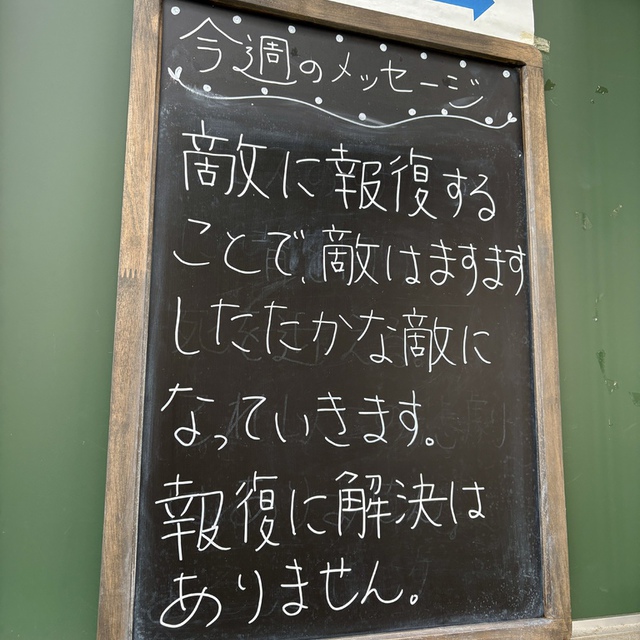 今週のメッセージ
敵に報復する
ことで、敵はますます
したたかな敵に
なっていきます。
報復に解決は
ありません。